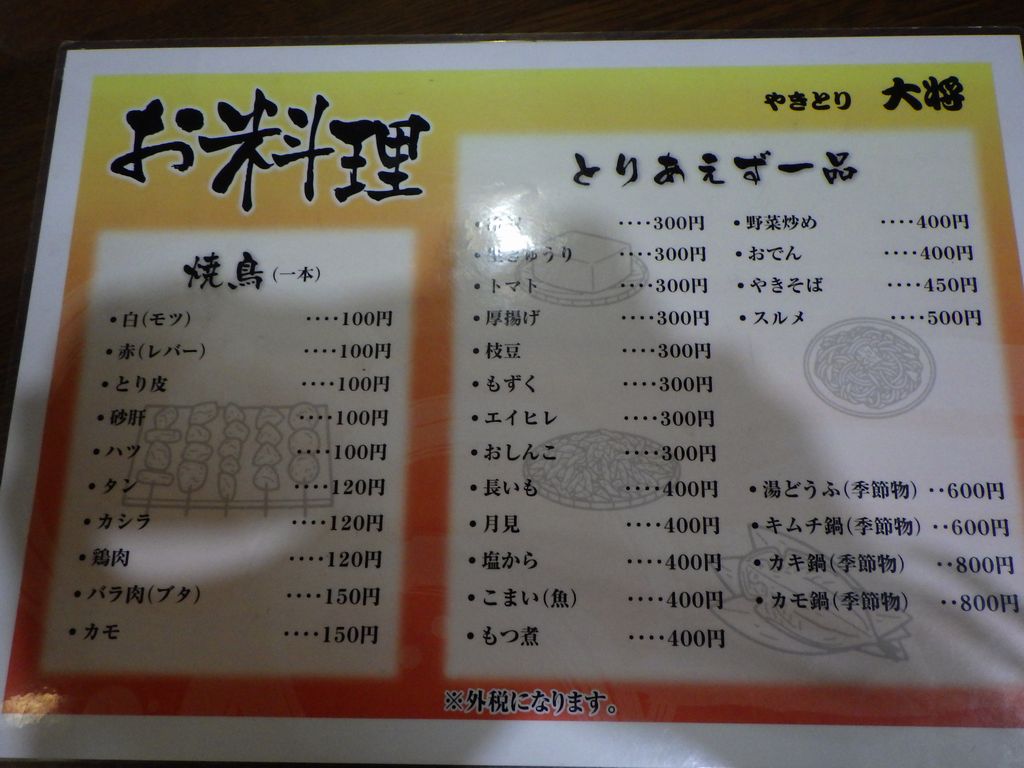 お料理
やきとり 大将
焼鳥(一本)
•白(モツ) ‥‥100円
•赤(レバー) ‥‥100円
•とり皮 ‥‥100円
•砂肝 ‥‥100円
•ハツ ‥‥100円
•タン ‥‥120円
•カシラ ‥‥120円
•鶏肉 ‥‥120円
•バラ肉(ブタ) ‥‥150円
•カモ ‥‥150円
とりあえず一品
‥‥300円
•生きゅうり ‥‥300円
•トマト ‥‥300円
•厚揚げ ‥‥300円
•枝豆 ‥‥300円
•もずく ‥‥300円
•エイヒレ ‥‥300円
•おしんこ ‥‥300円
•長いも ‥‥400円
•月見 ‥‥400円
•塩から ‥‥400円
•こまい(魚) ‥‥400円
•もつ煮 ‥‥400円
•野菜炒め ‥‥400円
•おでん ‥‥400円
•やきそば ‥‥450円
•スルメ ‥‥500円
•湯どうふ(季節物) ‥600円
•キムチ鍋(季節物) ‥600円
•カキ鍋(季節物) ‥800円
•カモ鍋(季節物) ‥800円
※外税になります。